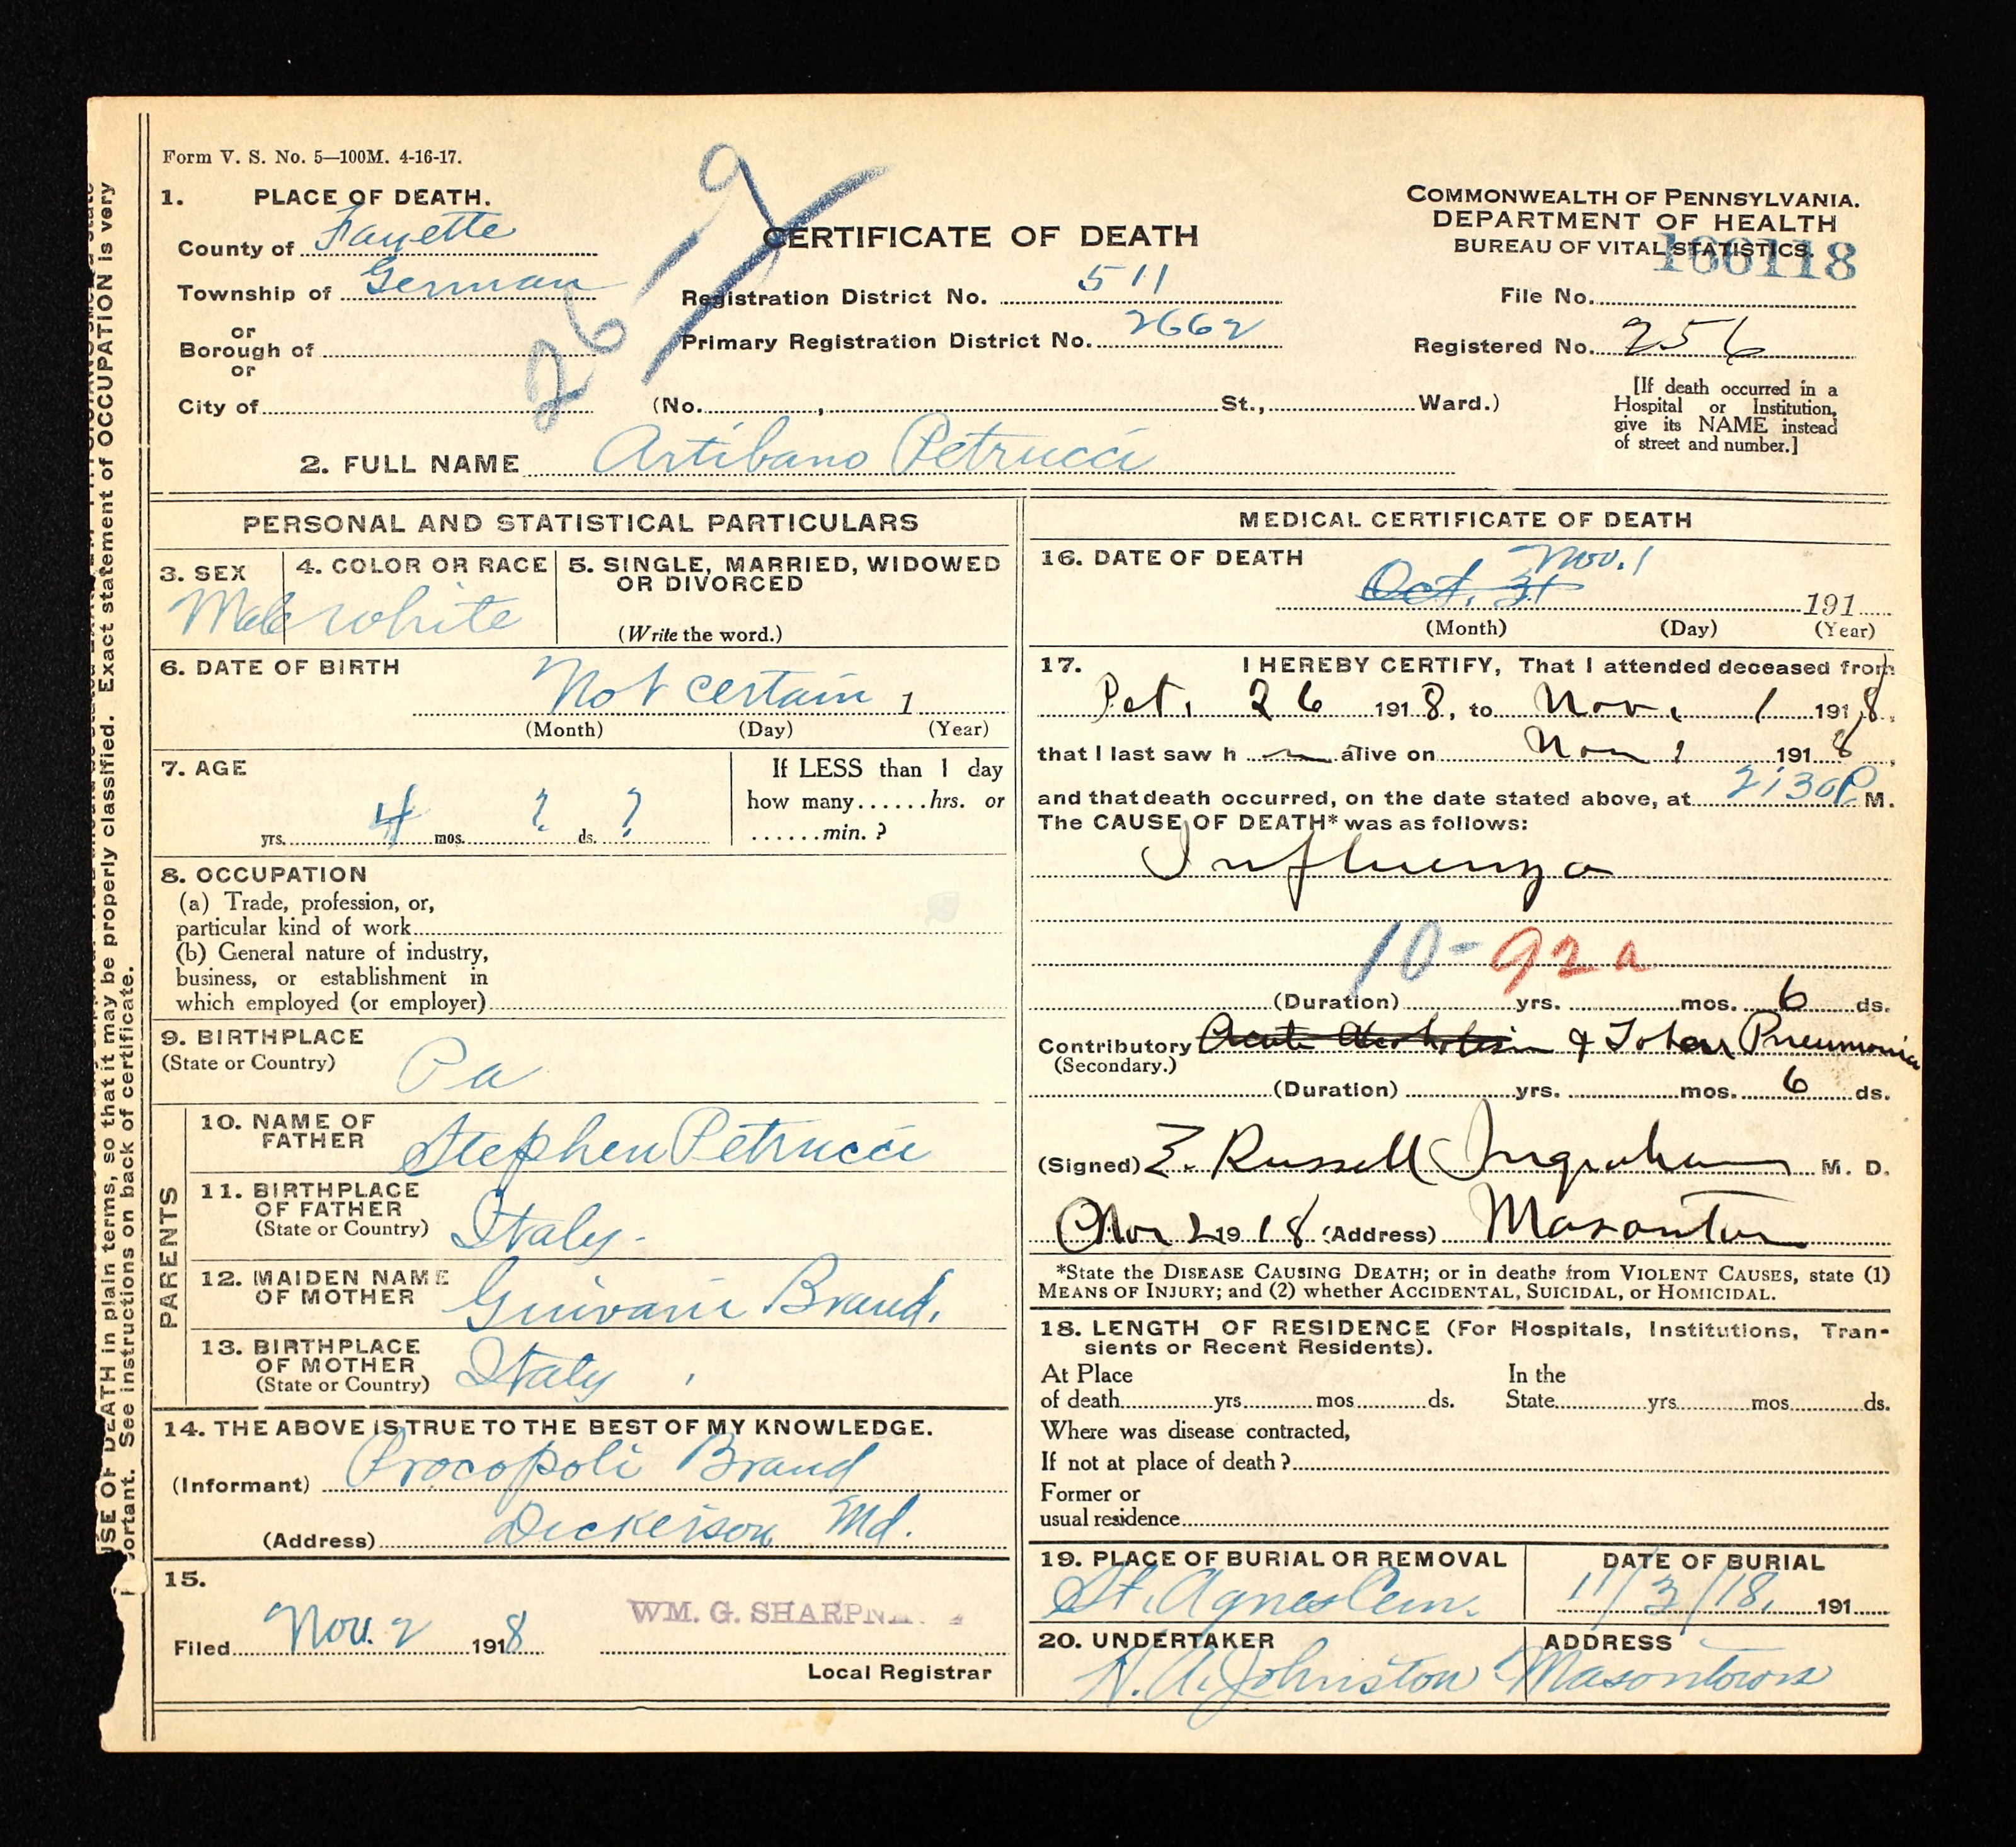 Form V. S. No. 5—100M. 4-16-17.
1. PLACE OF DEATH.
County of Fayette
Township of German
or
Borough of
or
City of
269
CERTIFICATE OF DEATH
Registration District No. 511
Primary Registration District No. 2662
(No. , St., Ward.)
COMMONWEALTH OF PENNSYLVANIA.
DEPARTMENT OF HEALTH
BUREAU OF VITAL STATISTICS.
File No.
Registered No. 256
[If death occurred in a
Hospital or Institution,
give its NAME instead
of street and number.]
2. FULL NAME Artibano Petrucci
PERSONAL AND STATISTICAL PARTICULARS
3. SEX
Male
4. COLOR OR RACE
white
5. SINGLE, MARRIED, WIDOWED
OR DIVORCED
(Write the word.)
6. DATE OF BIRTH
Not certain 1
(Month) (Day) (Year)
7. AGE
yrs. 4 mos. ? ds. ?
If LESS than 1 day
how many......hrs. or
......min. ?
8. OCCUPATION
(a) Trade, profession, or,
particular kind of work
(b) General nature of industry,
business, or establishment in
which employed (or employer)
9. BIRTHPLACE
(State or Country)
Pa
PARENTS
10. NAME OF
FATHER
Stephen Petrucci
11. BIRTHPLACE
OF FATHER
(State or Country)
Italy.
12. MAIDEN NAME
OF MOTHER
Brand.
13. BIRTHPLACE
OF MOTHER
(State or Country)
Italy
14. THE ABOVE IS TRUE TO THE BEST OF MY KNOWLEDGE.
(Informant) Procopoli Brand
(Address) Dickerson Md.
15.
Filed Nov. 2 1918
WM. G. SHARPN
Local Registrar
MEDICAL CERTIFICATE OF DEATH
16. DATE OF DEATH
Nov. 1
Oct. 31 191
(Month) (Day) (Year)
17. I HEREBY CERTIFY, That I attended deceased from
Oct. 26 1918, to Nov. 1 1918,
that I last saw h alive on Nov 1 1918,
and that death occurred, on the date stated above, at 2:30 P. M.
The CAUSE OF DEATH* was as follows:
Influenza
10-92a
(Duration) yrs. mos. 6 ds.
Contributory & Lobar Pneumonia
(Secondary.)
(Duration) yrs. mos. 6 ds.
(Signed) E. Russell Ingraham M. D.
Nov 2 1918 (Address) Masontown
*State the DISEASE CAUSING DEATH; or in deaths from VIOLENT CAUSES, state (1)
MEANS OF INJURY; and (2) whether ACCIDENTAL, SUICIDAL, or HOMICIDAL.
18. LENGTH OF RESIDENCE (For Hospitals, Institutions, Tran-
sients or Recent Residents).
At Place
of death yrs. mos. ds.
In the
State yrs. mos. ds.
Where was disease contracted,
If not at place of death?
Former or
usual residence
19. PLACE OF BURIAL OR REMOVAL
St. Agnes Cem.
DATE OF BURIAL
11/3/18. 191
20. UNDERTAKER
H. A. Johnston
ADDRESS
Masontown
Exact statement of OCCUPATION is very
USE OF DEATH in plain terms, so that it may be properly classified.
portant. See instructions on back of certificate.